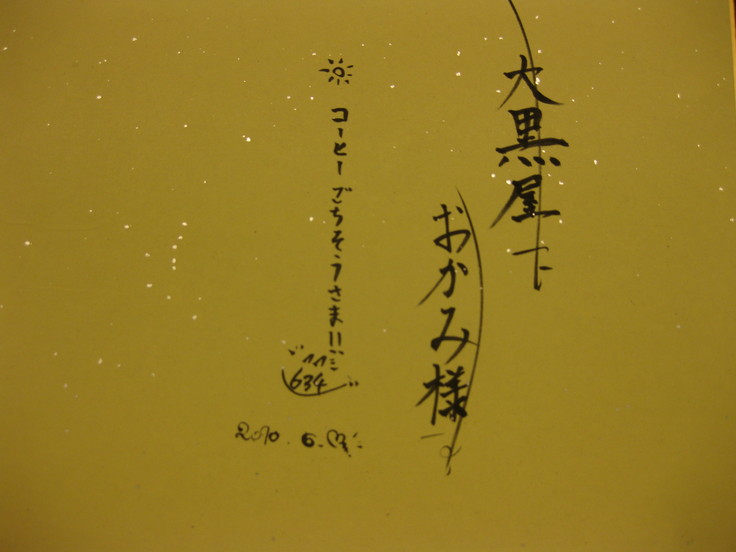 大黒屋
おかみ様
コーヒーごちそうさま!!
634
2010.6.